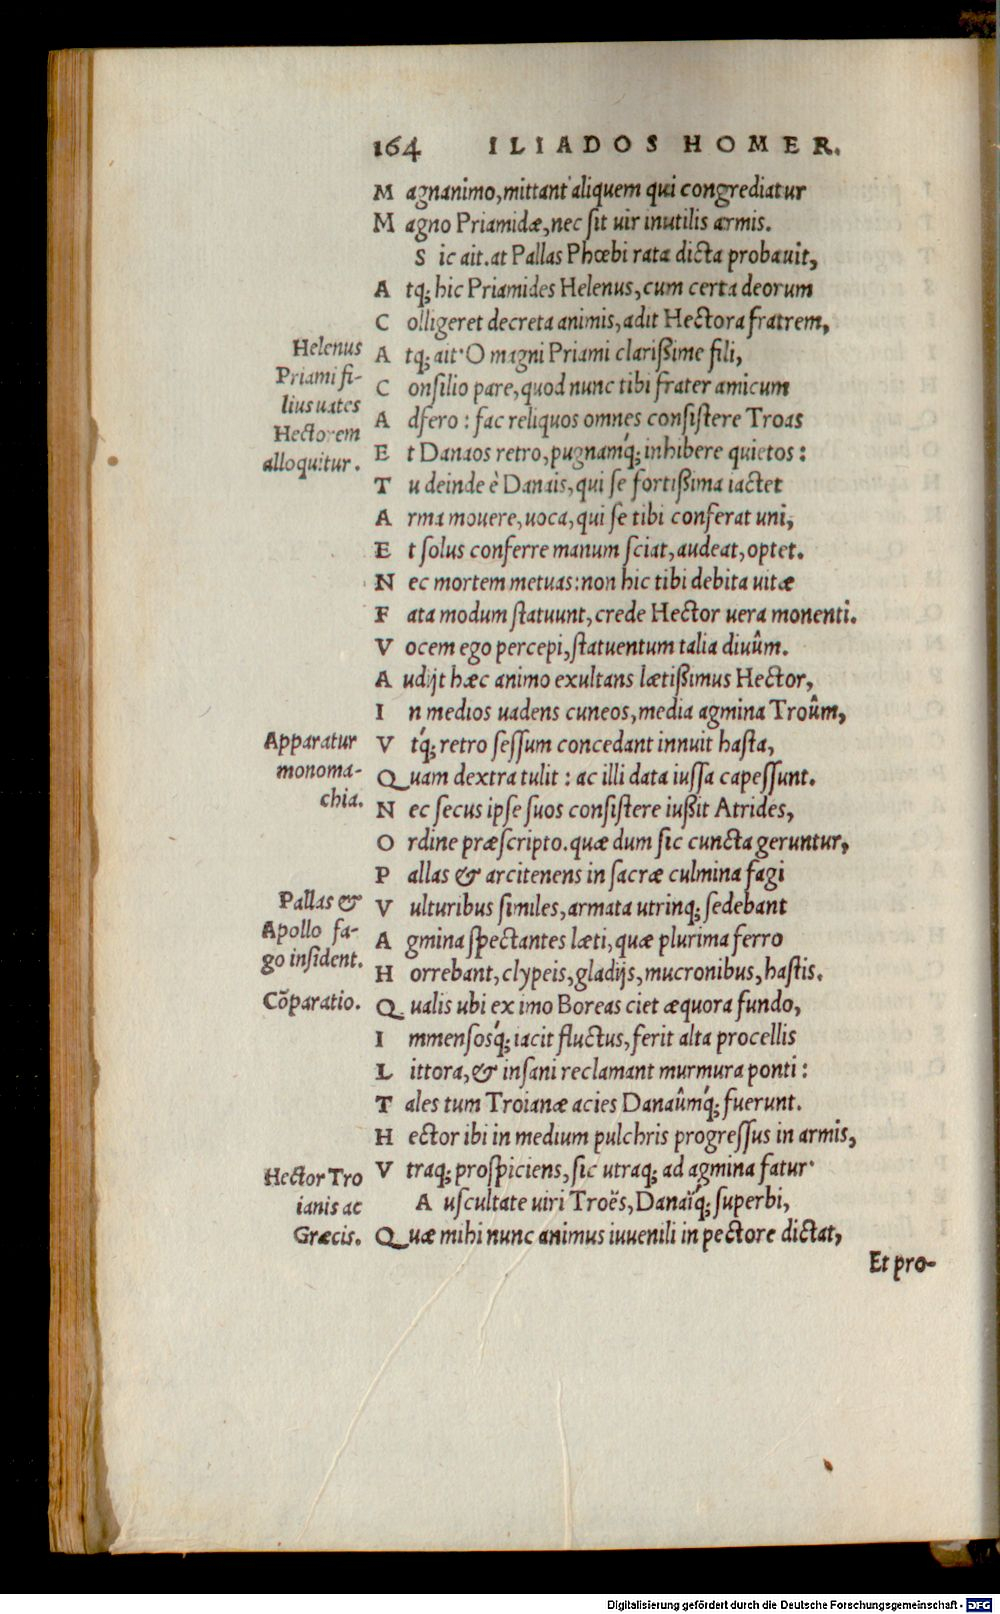 164 ILIADOS HOMER.
Magnanimo, mittant aliquem qui congrediatur
Magno Priamidæ, nec ſit uir inutilis armis.
Sic ait. at Pallas Phœbi rata dicta probauit,
Atq; hic Priamides Helenus, cum certa deorum
Colligeret decreta animis, adit Hectora fratrem,
Helenus
Priami fi-
lius uates
Hectorem
alloquitur.
Atq; ait· O magni Priami clarißime fili,
Conſilio pare, quod nunc tibi frater amicum
Adfero : fac reliquos omnes conſiſtere Troas
Et Danaos retro, pugnamq́; inhibere quietos :
Tu deinde è Danais, qui ſe fortißima iactet
Arma mouere, uoca, qui ſe tibi conferat uni,
Et ſolus conferre manum ſciat, audeat, optet.
Nec mortem metuas: non hic tibi debita uitæ
Fata modum ſtatuunt, crede Hector uera monenti.
Vocem ego percepi, ſtatuentum talia diuûm.
Audijt hæc animo exultans lætißimus Hector,
In medios uadens cuneos, media agmina Troûm,
Apparatur
monoma-
chia.
Vtq́; retro ſeſſum concedant innuit haſta,
Quam dextra tulit : ac illi data iuſſa capeſſunt.
Nec ſecus ipſe ſuos conſiſtere iußit Atrides,
Ordine præſcripto. quæ dum ſic cuncta geruntur,
Pallas & arcitenens in ſacræ culmina fagi
Pallas &
Apollo fa-
go inſident.
Vulturibus ſimiles, armata utrinq; ſedebant
Agmina ſpectantes læti, quæ plurima ferro
Horrebant, clypeis, gladijs, mucronibus, haſtis.
Cõparatio.
Qualis ubi ex imo Boreas ciet æquora fundo,
Immenſosq́; iacit fluctus, ferit alta procellis
Littora, & inſani reclamant murmura ponti :
Tales tum Troianæ acies Danaûmq́; fuerunt.
Hector ibi in medium pulchris progreſſus in armis,
Vtraq; proſpiciens, ſic utraq; ad agmina fatur·
Hector Tro
ianis ac
Græcis.
Auſcultate uiri Troës, Danaïq́; ſuperbi,
Quæ mihi nunc animus iuuenili in pectore dictat,
Et pro-
Digitalisierung gefördert durch die Deutsche Forschungsgemeinschaft - DFG